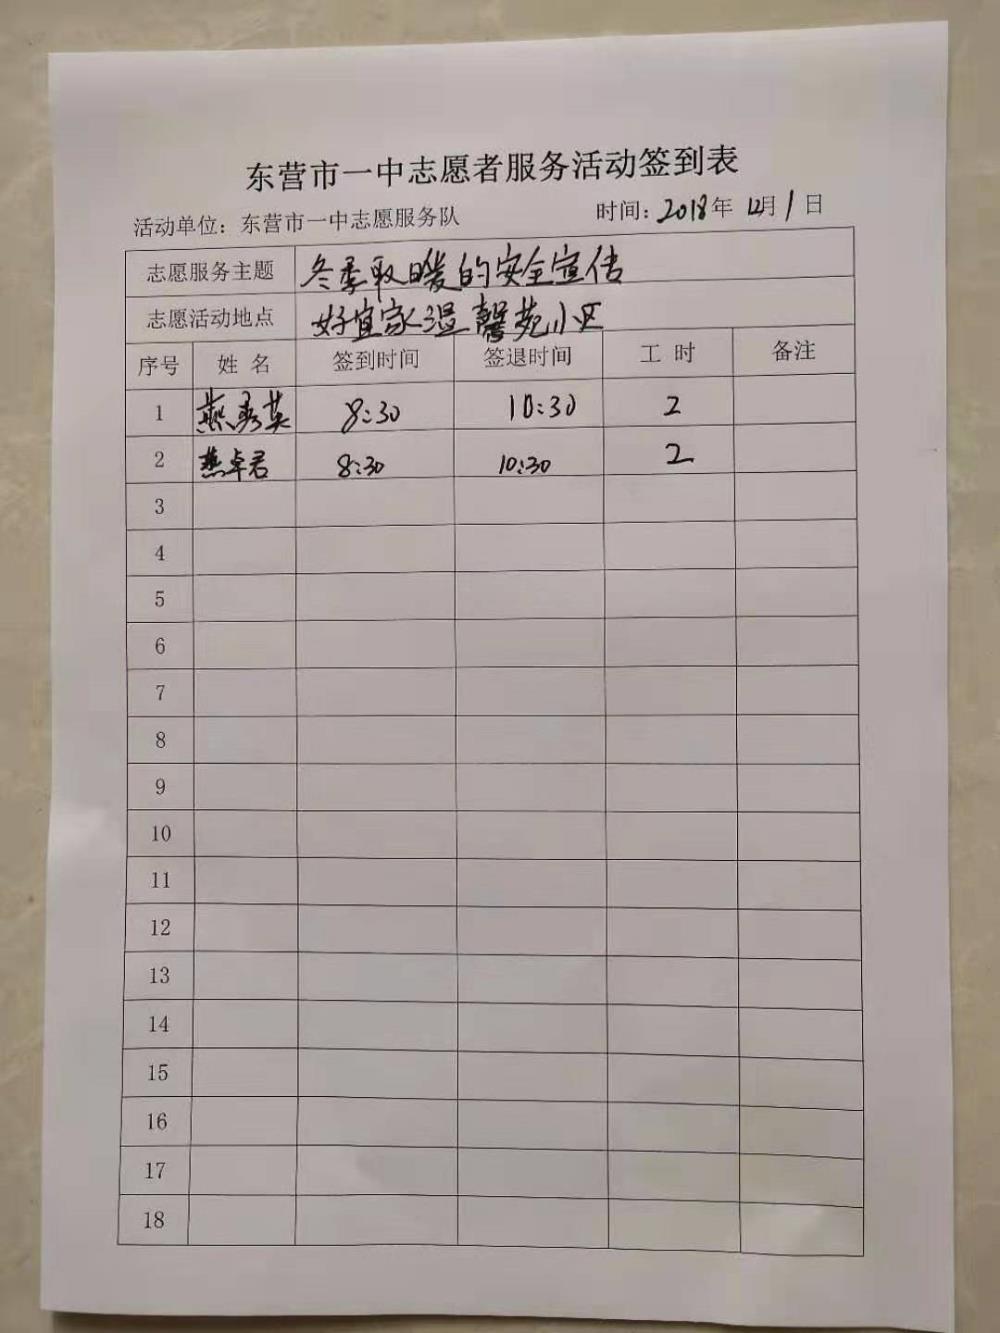 东营市一中志愿者服务活动签到表
活动单位：东营市一中志愿服务队 时间：2018年 12月 1 日
志愿服务主题 冬季取暖的安全宣传
志愿活动地点 好宜家温馨苑小区
序号 姓 名 签到时间 签退时间 工 时 备注
1 燕秀英 8:30 10:30 2
2 燕卓君 8:30 10:30 2
3
4
5
6
7
8
9
10
11
12
13
14
15
16
17
18